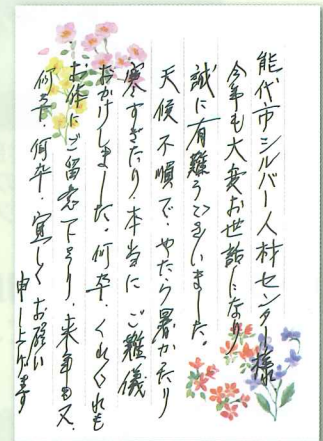 能代市シルバー人材センター様
今年も大変お世話になり
誠に有難うございました。
天候不順で、やたら暑かったり
寒すぎたり、本当にご難儀
おかけしました。何卒、くれぐれも
お体にご留意下さり、来年も又、
何卒、何卒、宜しくお願い
申し上げます